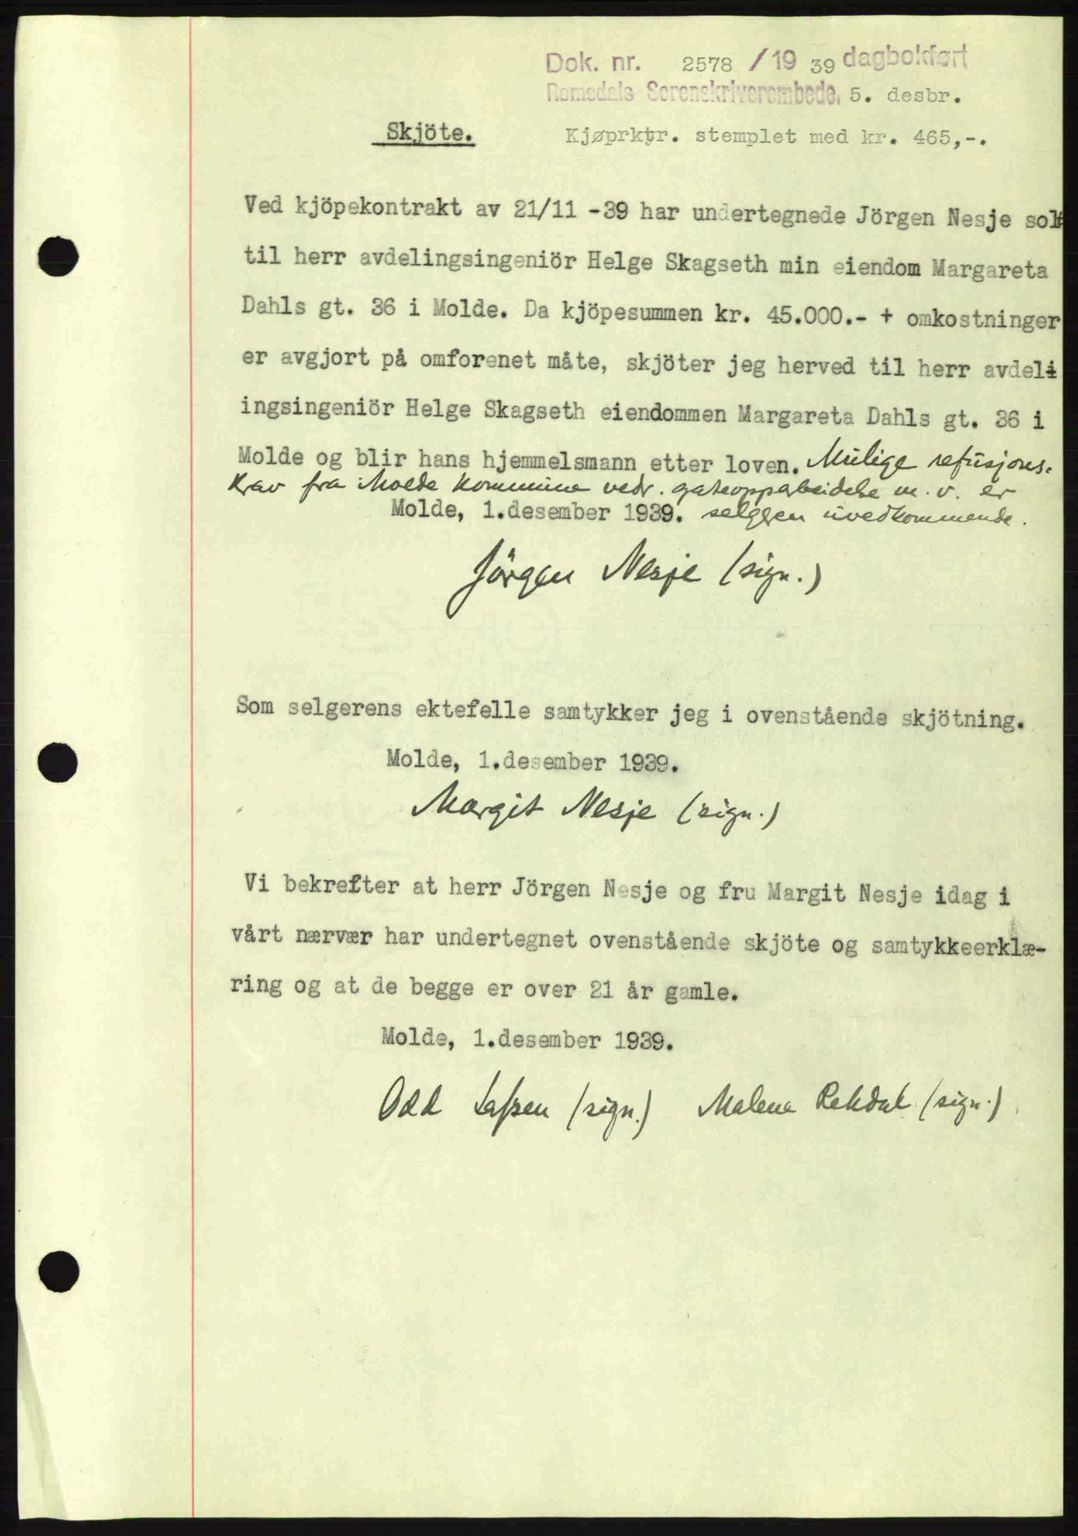 Dok. nr. 2578 /19 39 dagbokført
Romsdals Sorenskriverembede, 5. desbr.
Skjöte.
Kjøprktr. stemplet med kr. 465,-.
Ved kjöpekontrakt av 21/11 -39 har undertegnede Jörgen Nesje solt
til herr avdelingsingeniör Helge Skagseth min eiendom Margareta
Dahls gt. 36 i Molde. Da kjöpesummen kr. 45.000.- + omkostninger
er avgjort på omforenet måte, skjöter jeg herved til herr avdel
ingsingeniör Helge Skagseth eiendommen Margareta Dahls gt. 36 i
Molde og blir hans hjemmelsmann etter loven. Mulige refusjons-
krav fra Molde kommune vedr. gateopparbeidelse m.v. er
Molde, 1.desember 1939. selgeren uvedkommende.
Jörgen Nesje (sign.)
Som selgerens ektefelle samtykker jeg i ovenstående skjötning.
Molde, 1.desember 1939.
Margit Nesje (sign.)
Vi bekrefter at herr Jörgen Nesje og fru Margit Nesje idag i
vårt nærvær har undertegnet ovenstående skjöte og samtykkeerklæ-
ring og at de begge er over 21 år gamle.
Molde, 1.desember 1939.
Odd (sign.) Malena Rekdal (sign.)